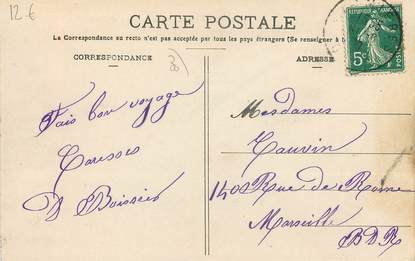 12 €
CARTE POSTALE
La Correspondance au recto n'est pas acceptée par tous les pays étrangers (Se renseigner à
CORRESPONDANCE
ADRESSE
Fais bon voyage
Caresses
Boissier
Mesdames
Cauvin
140 Rue de Rome
Marseille
BDR
5c